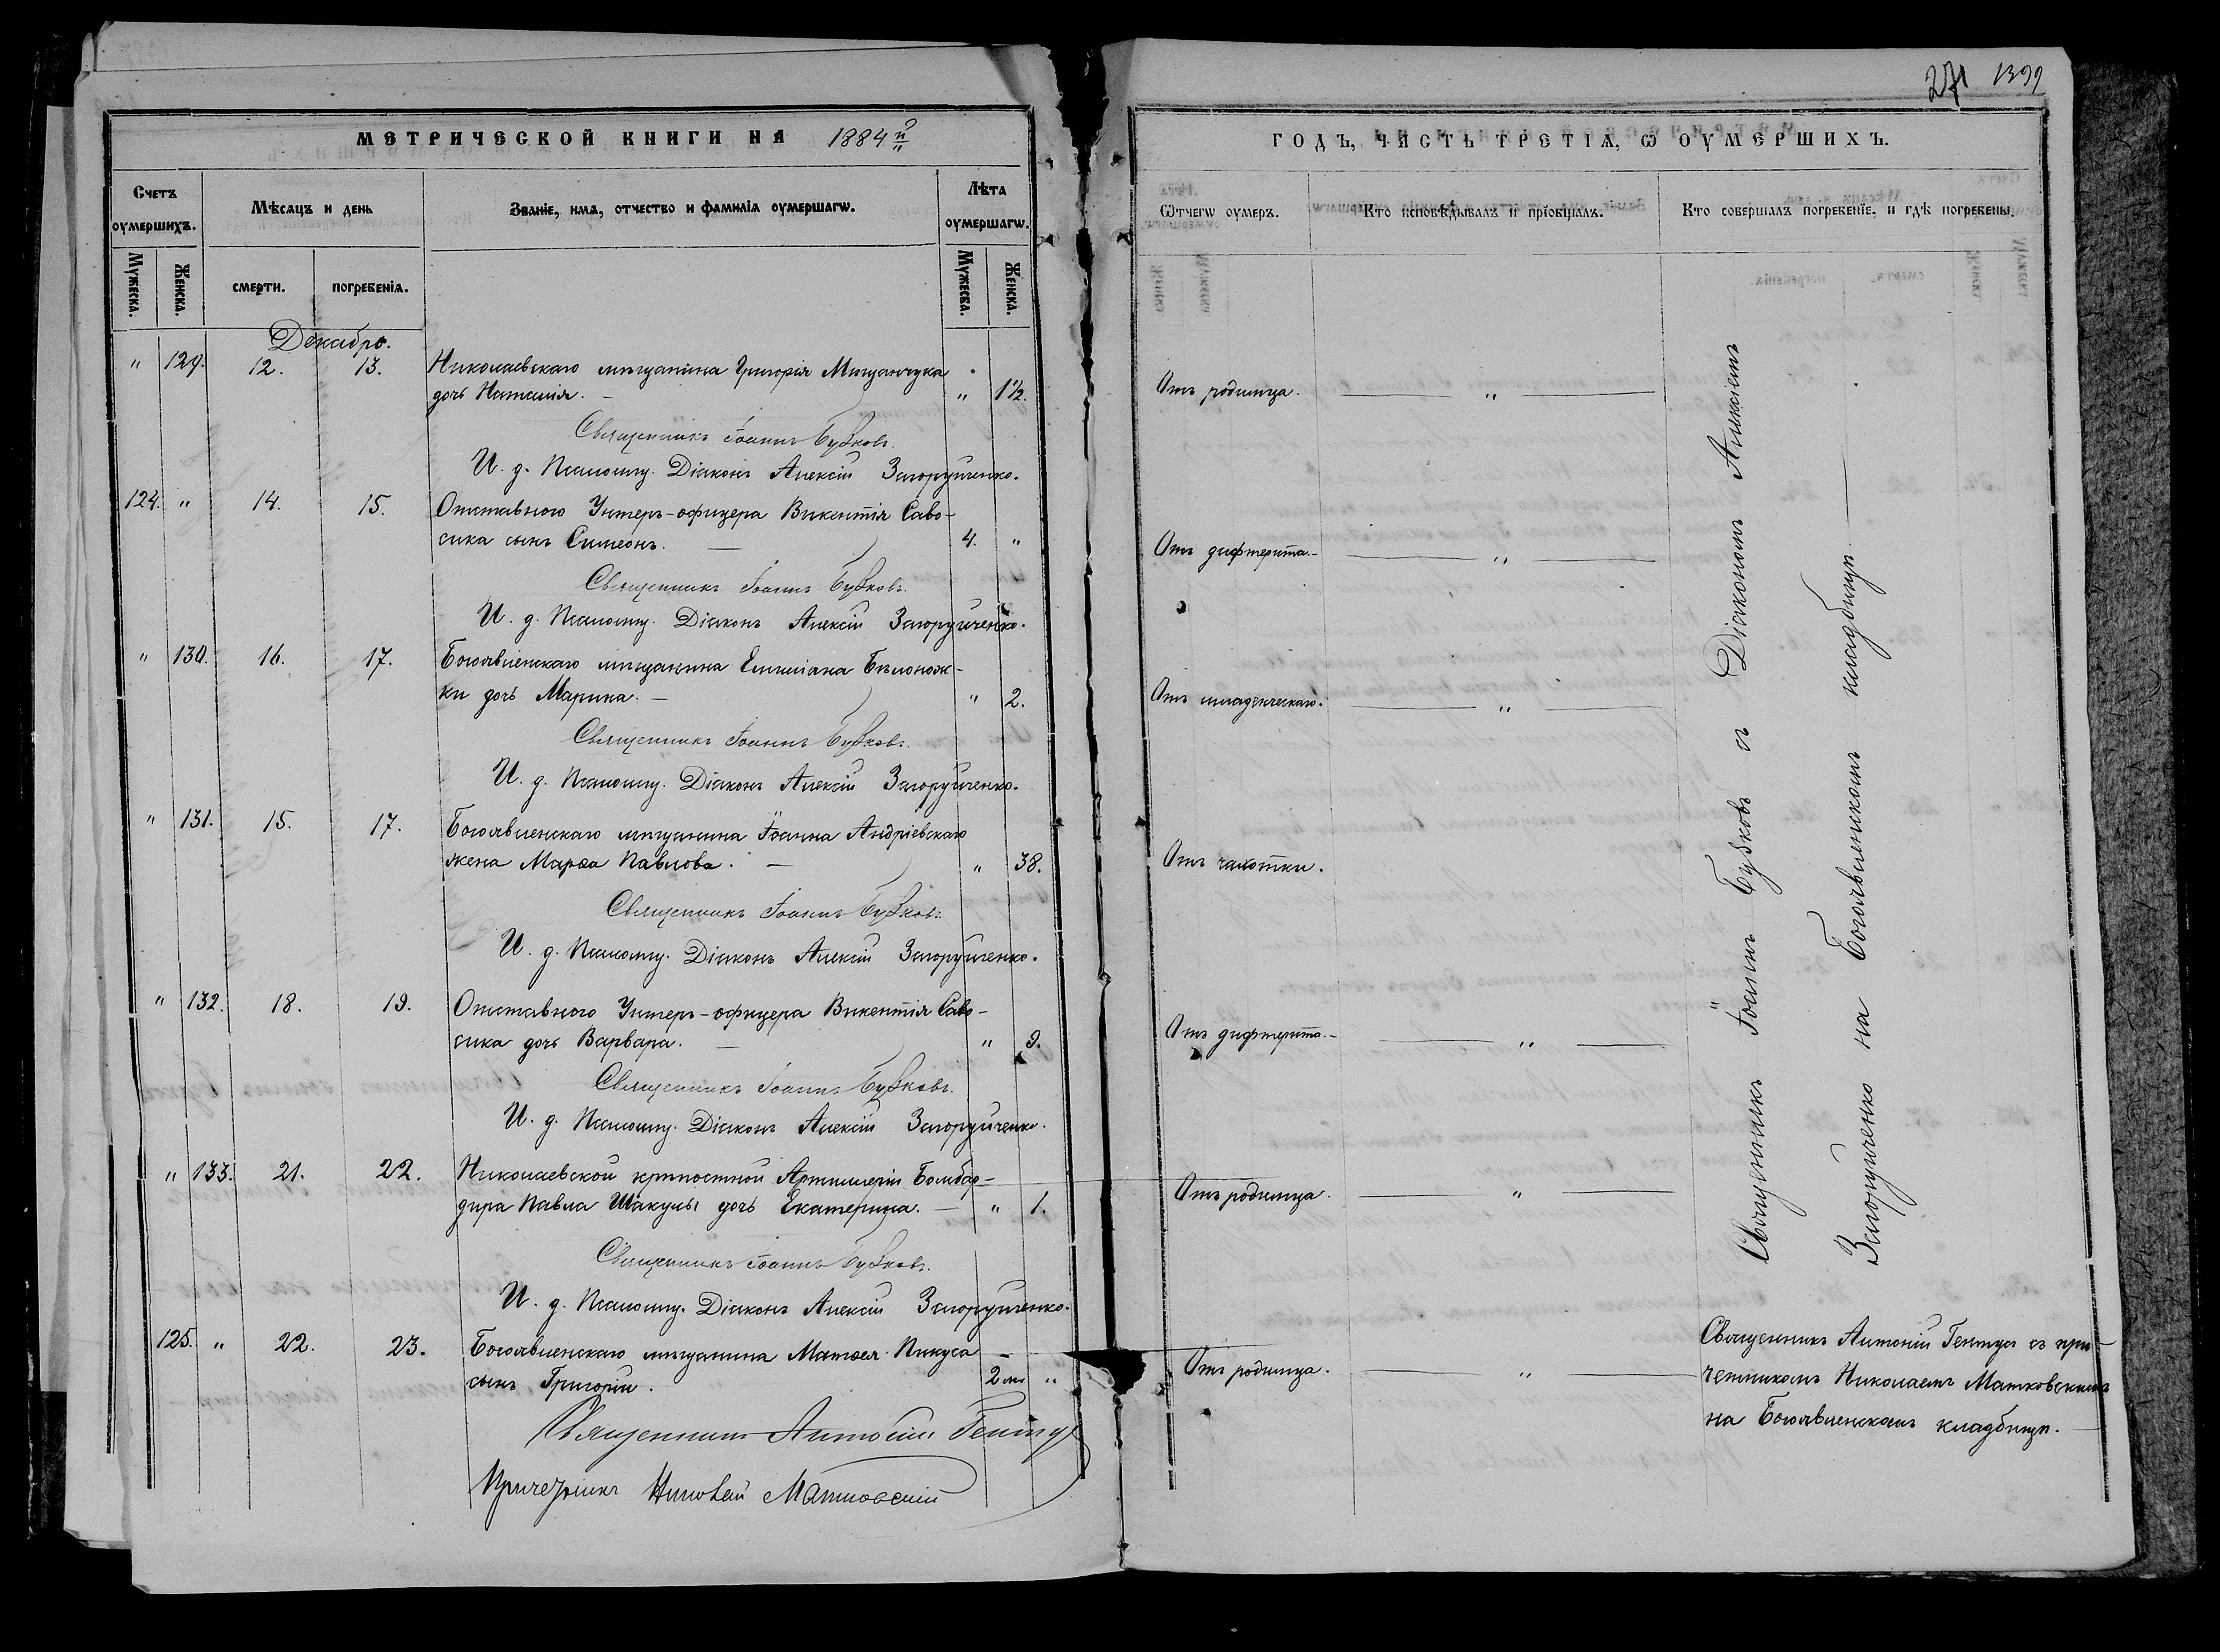 271 1399
МЕТРИЧЕСКОЙ КНИГИ НА 1884й
Счетъ оумершихъ.
Мѣсяцъ и день
Званіе, имя, отчество и фамилія оумершагѡ.
Лѣта оумершагѡ.
Мужеска.
Женска.
смерти.
погребенія.
Мужеска.
Женска.
Декабрь.
" 129. 12. 13. Николаевскаго мѣщанина Григорія Мищанчука
дочь Наталія. — " 1½.
Священникъ Іоаннъ Бубковъ.
И. д. Псаломщ. Діаконъ Алексій Загоруйченко.
124. " 14. 15. Отставного Унтеръ-офицера Викентія Саво-
сика сынъ Симеонъ. — 4. "
Священникъ Іоаннъ Бубковъ.
И. д. Псаломщ. Діаконъ Алексій Загоруйченко.
" 130. 16. 17. Богоявленскаго мѣщанина Емиліана Бѣлонож-
ки дочь Марина. — " 2.
Священникъ Іоаннъ Бубковъ.
И. д. Псаломщ. Діаконъ Алексій Загоруйченко.
" 131. 15. 17. Богоявленскаго мѣщанина Іоанна Андріевскаго
жена Марѳа Павлова. — " 38.
Священникъ Іоаннъ Бубковъ.
И. д. Псаломщ. Діаконъ Алексій Загоруйченко.
" 132. 18. 19. Отставного Унтеръ-офицера Викентія Саво-
сика дочь Варвара. — " 9.
Священникъ Іоаннъ Бубковъ.
И. д. Псаломщ. Діаконъ Алексій Загоруйченко.
" 133. 21. 22. Николаевской крѣпостной Артиллеріи Бомбар-
дира Павла Шакулы дочь Екатерина. — " 1.
Священникъ Іоаннъ Бубковъ.
И. д. Псаломщ. Діаконъ Алексій Загоруйченко.
125. " 22. 23. Богоявленскаго мѣщанина Матѳея Пикуса
сынъ Григорій. 2 м "
Священникъ Антоній Гентуш
Причетникъ Николай Матковскій
ГОДЪ, ЧАСТЬ ТРЕТІЯ, Ѡ ОУМЕРШИХЪ.
Ѿтчегѡ оумеръ.
Кто исповѣдывалъ и пріобщалъ.
Кто совершалъ погребеніе, и гдѣ погребены.
Отъ родимца. — " —
Отъ дифтерита. — " —
Отъ младенческаго. — " —
Отъ чахотки.
Отъ дифтерита. — " —
Отъ родимца. — " —
Отъ родимца. — " —
Священникъ Іоаннъ Бубковъ съ Діакономъ Алексіемъ
Загоруйченко на Богоявленскомъ кладбищѣ —
Священникъ Антоній Гентуш съ при-
четникомъ Николаемъ Матковскимъ
на Богоявленскомъ кладбищѣ. —